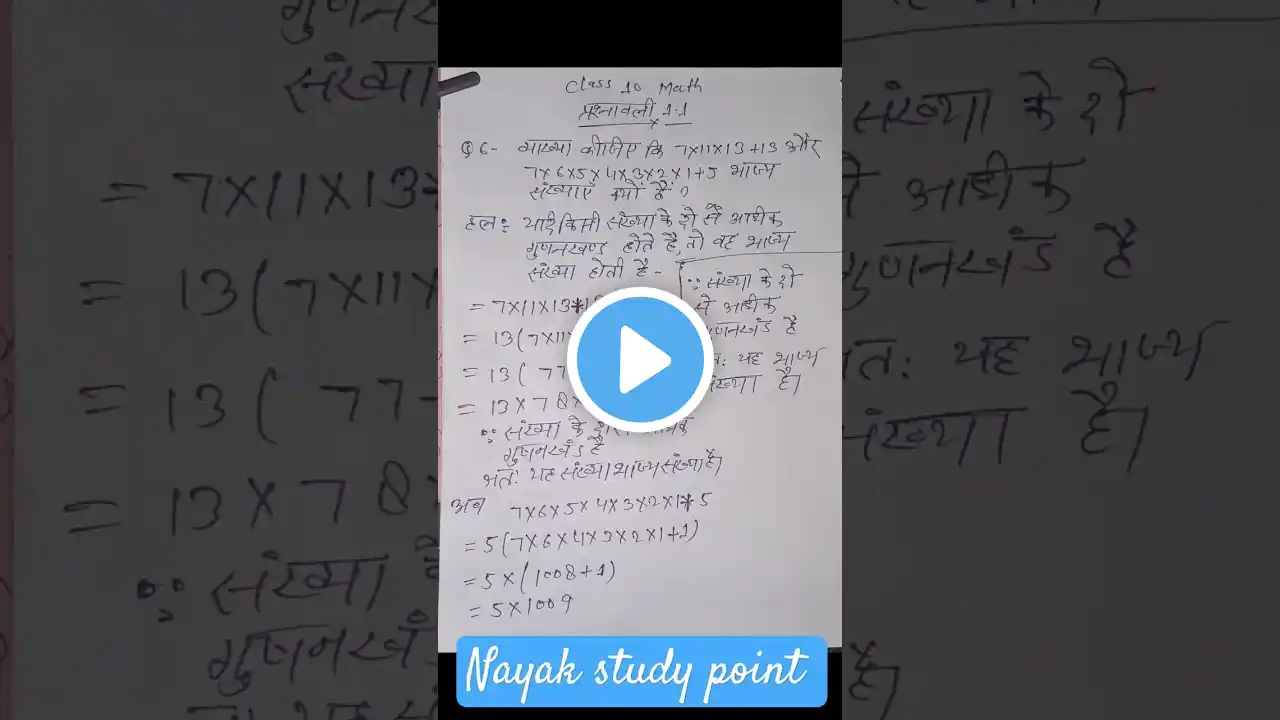 Class 10 Math
प्रश्नावली 1.1
Q 6- व्याख्या कीजिए कि 7x11x13+13 और
7x6x5x4x3x2x1+5 भाज्य
संख्याएं क्यों हैं?
हल: यदि किसी संख्या के दो से अधिक
गुणनखण्ड होते है, तो वह भाज्य
संख्या होती है -
= 7x11x13+
= 13(7x11
= 13( 77
= 13x78x
∵ संख्या के दो से
गुणनखंड है
अतः यह संख्या भाज्य संख्या है।
∵ संख्या के दो
से अधिक
गुणनखंड है
यह भाज्य
संख्या है।
अब 7x6x5x4x3x2x1+5
= 5(7x6x4x3x2x1+1)
= 5x(1008+1)
= 5x1009
Nayak study point